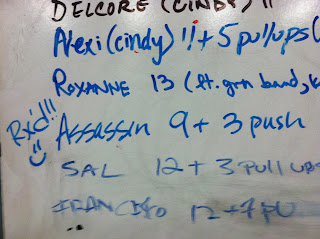 DELCORE (CINDY) !!
Alexi (cindy) !! + 5 pullups (
ROXANNE 13 (lt. grn band, k
Rx'd!!
Assassin 9 + 3 push
SAL 12 + 3 PULL UPS
FRANCISCO 12 + 7 PU